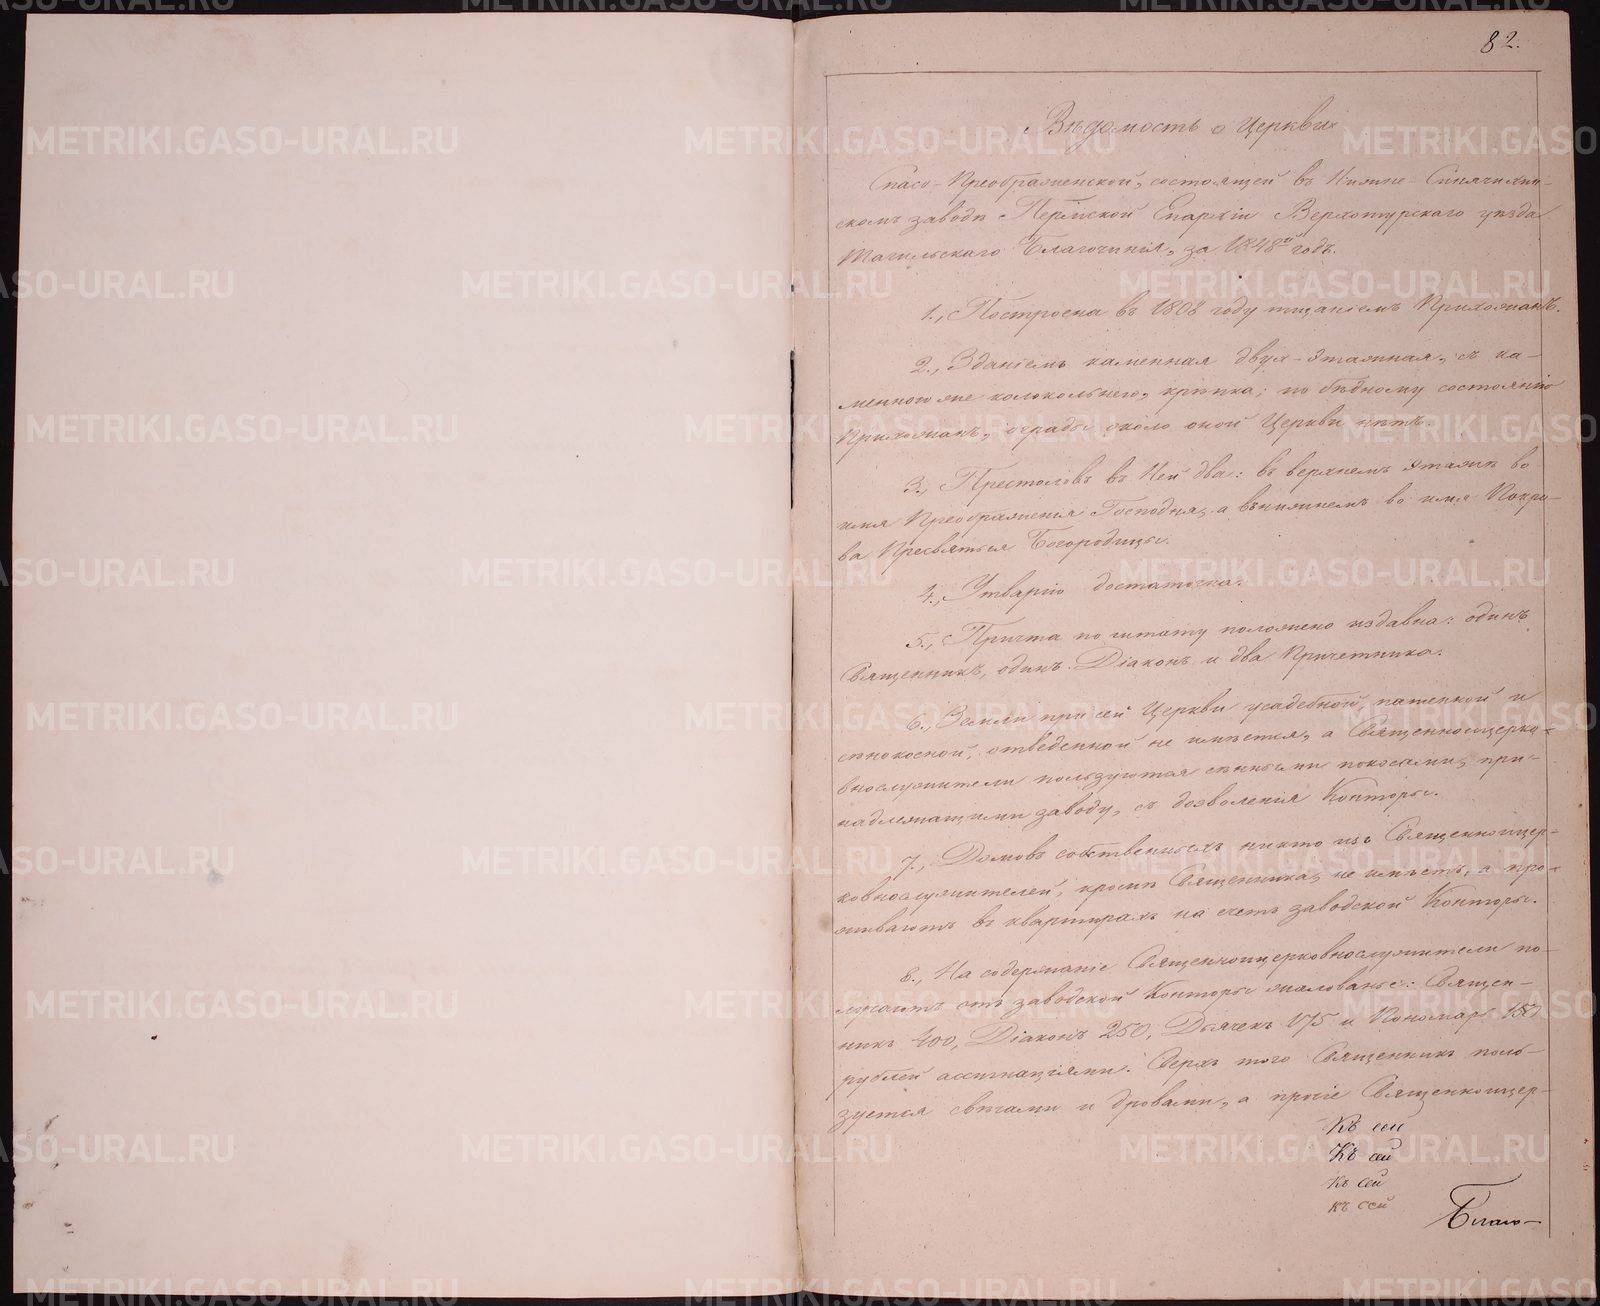 82.
Вѣдомость о Церкви
Спасо-Преображенской, состоящей въ Нижне-Синячихин-
скомъ заводѣ Пермской Епархіи Верхотурскаго уѣзда
Тагильскаго Благочинія, за 1848й годъ.
1., Построена въ 1808 году тщаніемъ Прихожанъ.
2., Зданіемъ каменная двух-этажная, съ ка-
менною же колокольнею, крѣпка; по бѣдному состоянію
Прихожанъ, ограды около оной Церкви нѣтъ.
3., Престоловъ въ Ней два: въ верхнемъ этажѣ во
имя Преображенія Господня, а въ нижнемъ во имя Покро-
ва Пресвятыя Богородицы.
4., Утварію достаточна.
5., Причта по штату положено издавна: одинъ
Священникъ, одинъ Діаконъ и два Причетника.
6., Земли при сей Церкви усадебной, пашенной и
сѣнокосной, отведенной не имѣется, а Священноцерко-
внослужители пользуются сѣнными покосами, при-
надлежащими заводу, съ дозволенія Конторы.
7., Домовъ собственныхъ никто изъ Священноцер-
ковнослужителей, кромѣ Священника, не имѣетъ, а про-
живаютъ въ квартирахъ на счетъ заводской Конторы.
8., На содержаніе Священноцерковнослужители по-
лучаютъ отъ заводской Конторы жалованье: Священ-
никъ 400, Діаконъ 250, Дьячекъ 175 и Пономарь 150
рублей ассигнаціями. Сверхъ того Священникъ поль-
зуется свѣчами и дровами, а прочіе Священноцер-
Къ сей
Къ сей
Къ сей
Къ сей
Благо-
METRIKI.GASO-URAL.RU